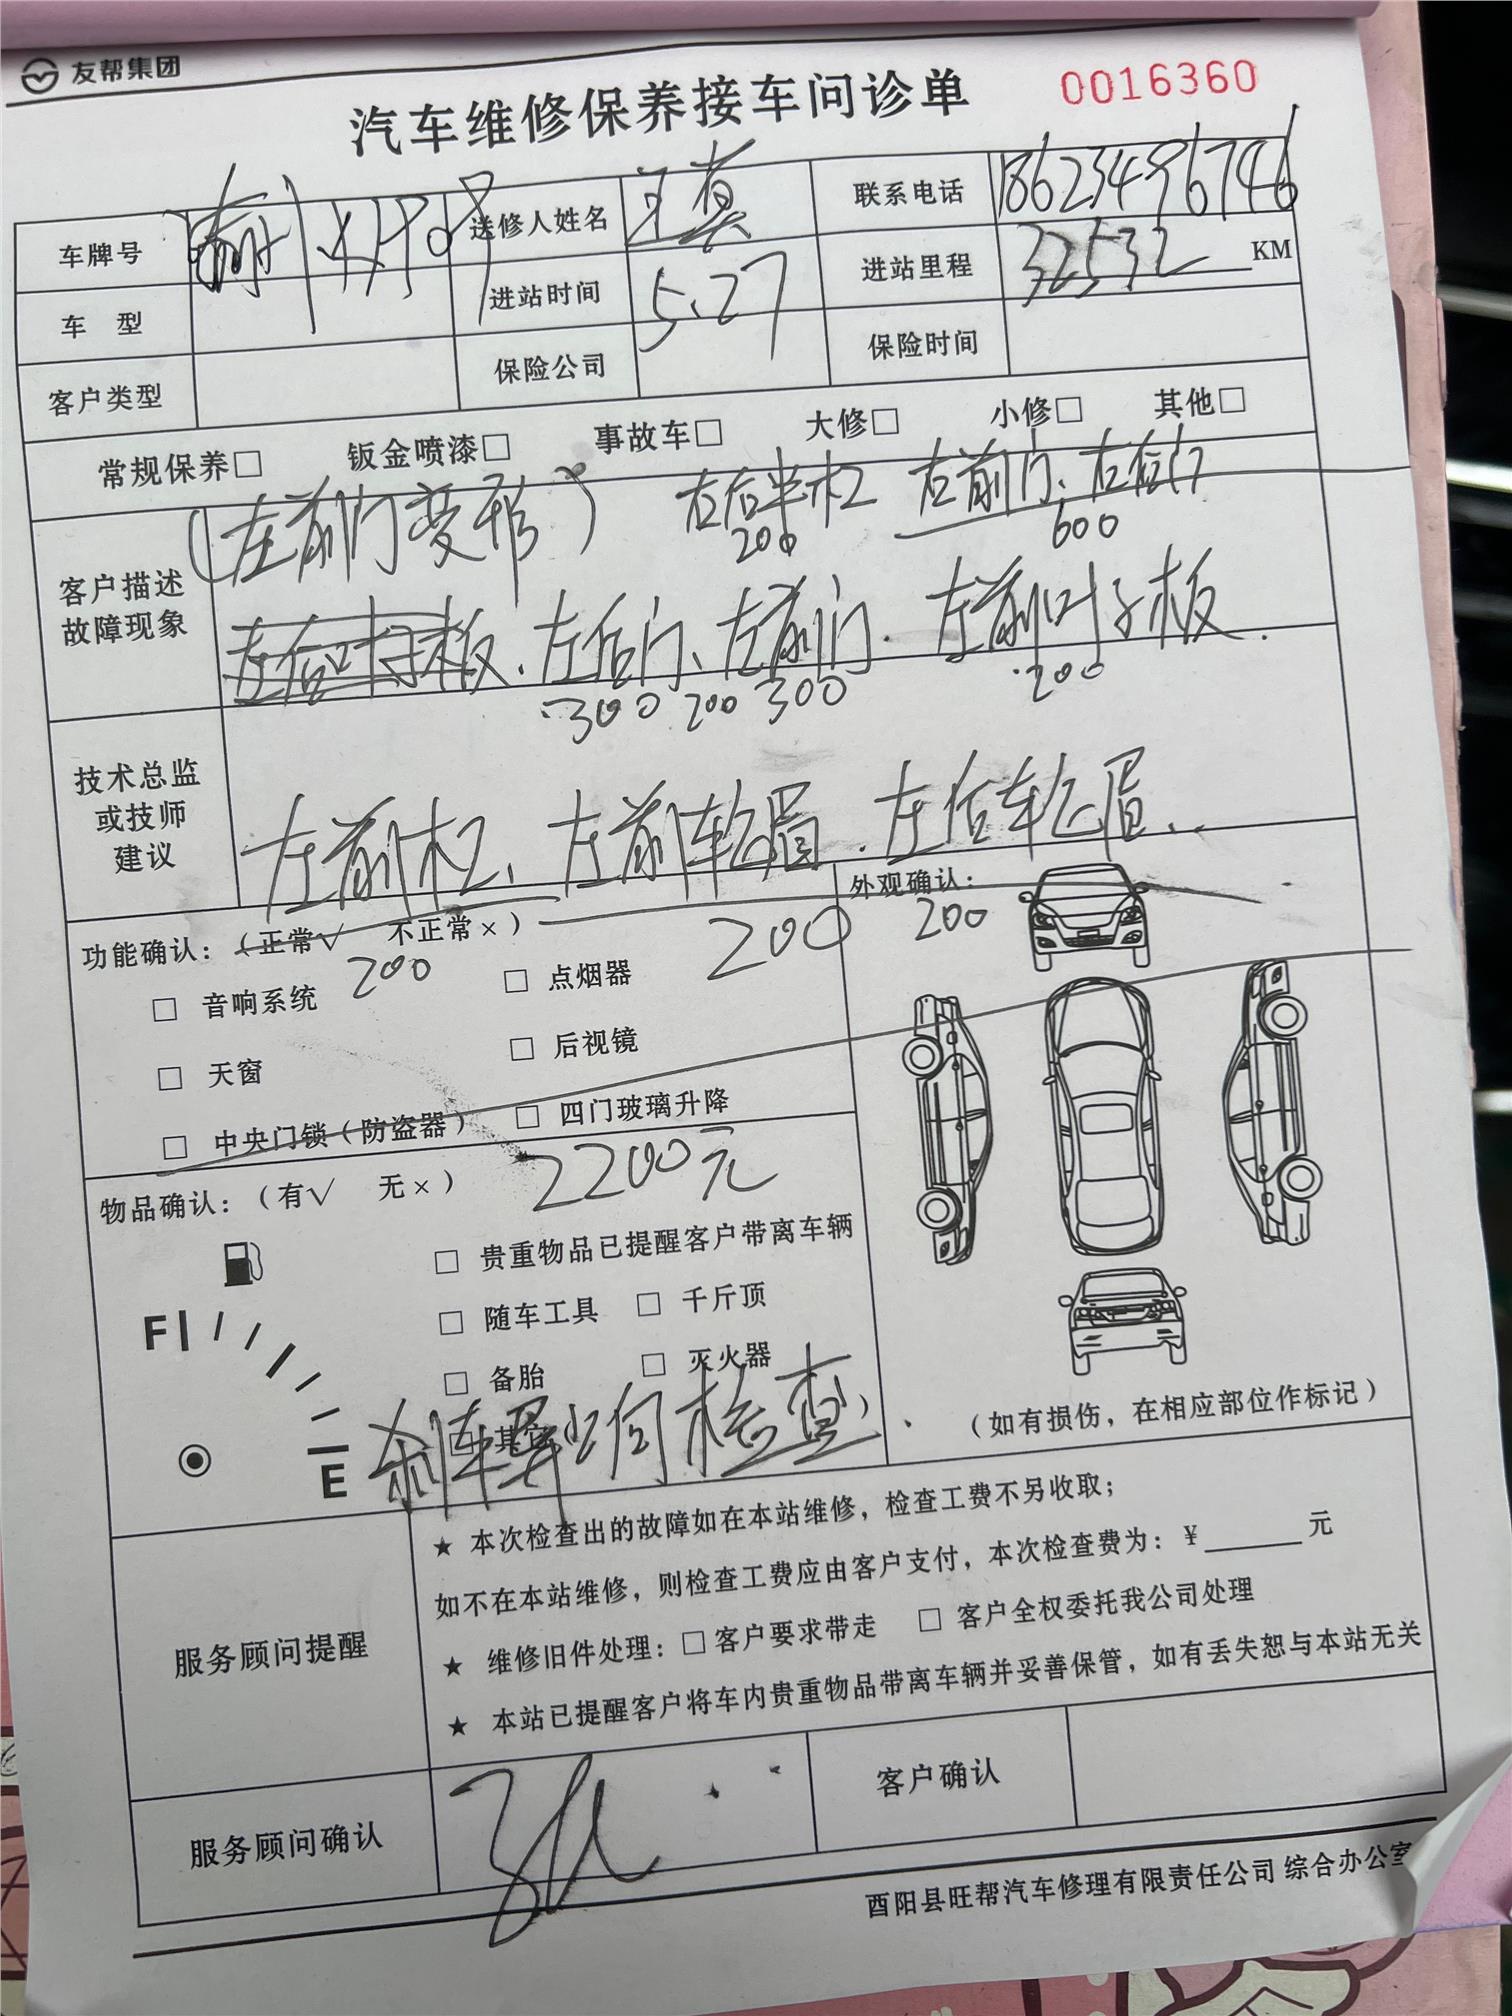 友帮集团
汽车维修保养接车问诊单 0016360
车牌号 送修人姓名 王真 联系电话 18623496746
车 型 进站时间 5.27 进站里程 32532 KM
客户类型 保险公司 保险时间
常规保养□ 钣金喷漆□ 事故车□ 大修□ 小修□ 其他□
客户描述故障现象 (左前门变形) 右后半杠 右前门、右后门
200 600
左后叶子板、左后门、左前门. 左前叶子板.
300 200 300 200
技术总监或技师建议 左前杠、左前轮眉.左后轮眉、
功能确认：（正常√ 不正常×） 外观确认：
200 200 200
□ 音响系统 □ 点烟器
□ 天窗 □ 后视镜
□ 中央门锁（防盗器） □ 四门玻璃升降
物品确认：（有√ 无×） 2200元
□ 贵重物品已提醒客户带离车辆
□ 随车工具 □ 千斤顶
□ 备胎 □ 灭火器
□ 其它
F
E
刹车异响检查、
（如有损伤，在相应部位作标记）
服务顾问提醒
★ 本次检查出的故障如在本站维修，检查工费不另收取；
如不在本站维修，则检查工费应由客户支付，本次检查费为：¥______元
★ 维修旧件处理：□客户要求带走 □ 客户全权委托我公司处理
★ 本站已提醒客户将车内贵重物品带离车辆并妥善保管，如有丢失恕与本站无关
服务顾问确认 客户确认
酉阳县旺帮汽车修理有限责任公司 综合办公室